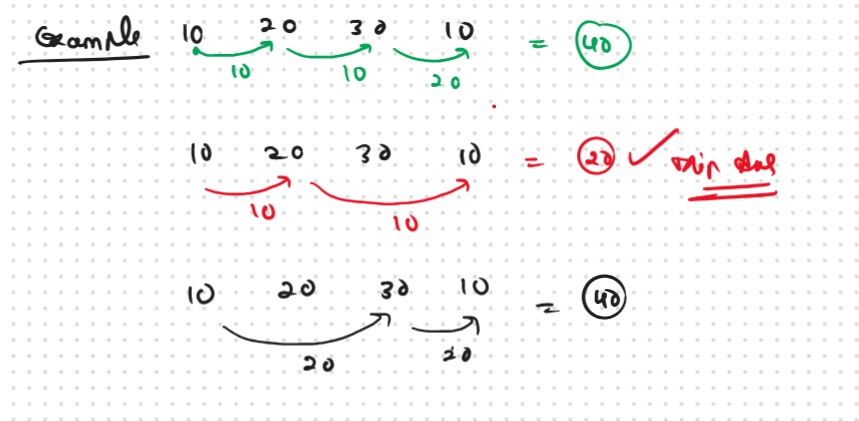 Example 10 20 30 10 = 40
10 10 20
10 20 30 10 = 20 ✓ min ans
10 10
10 20 30 10 = 40
20 20